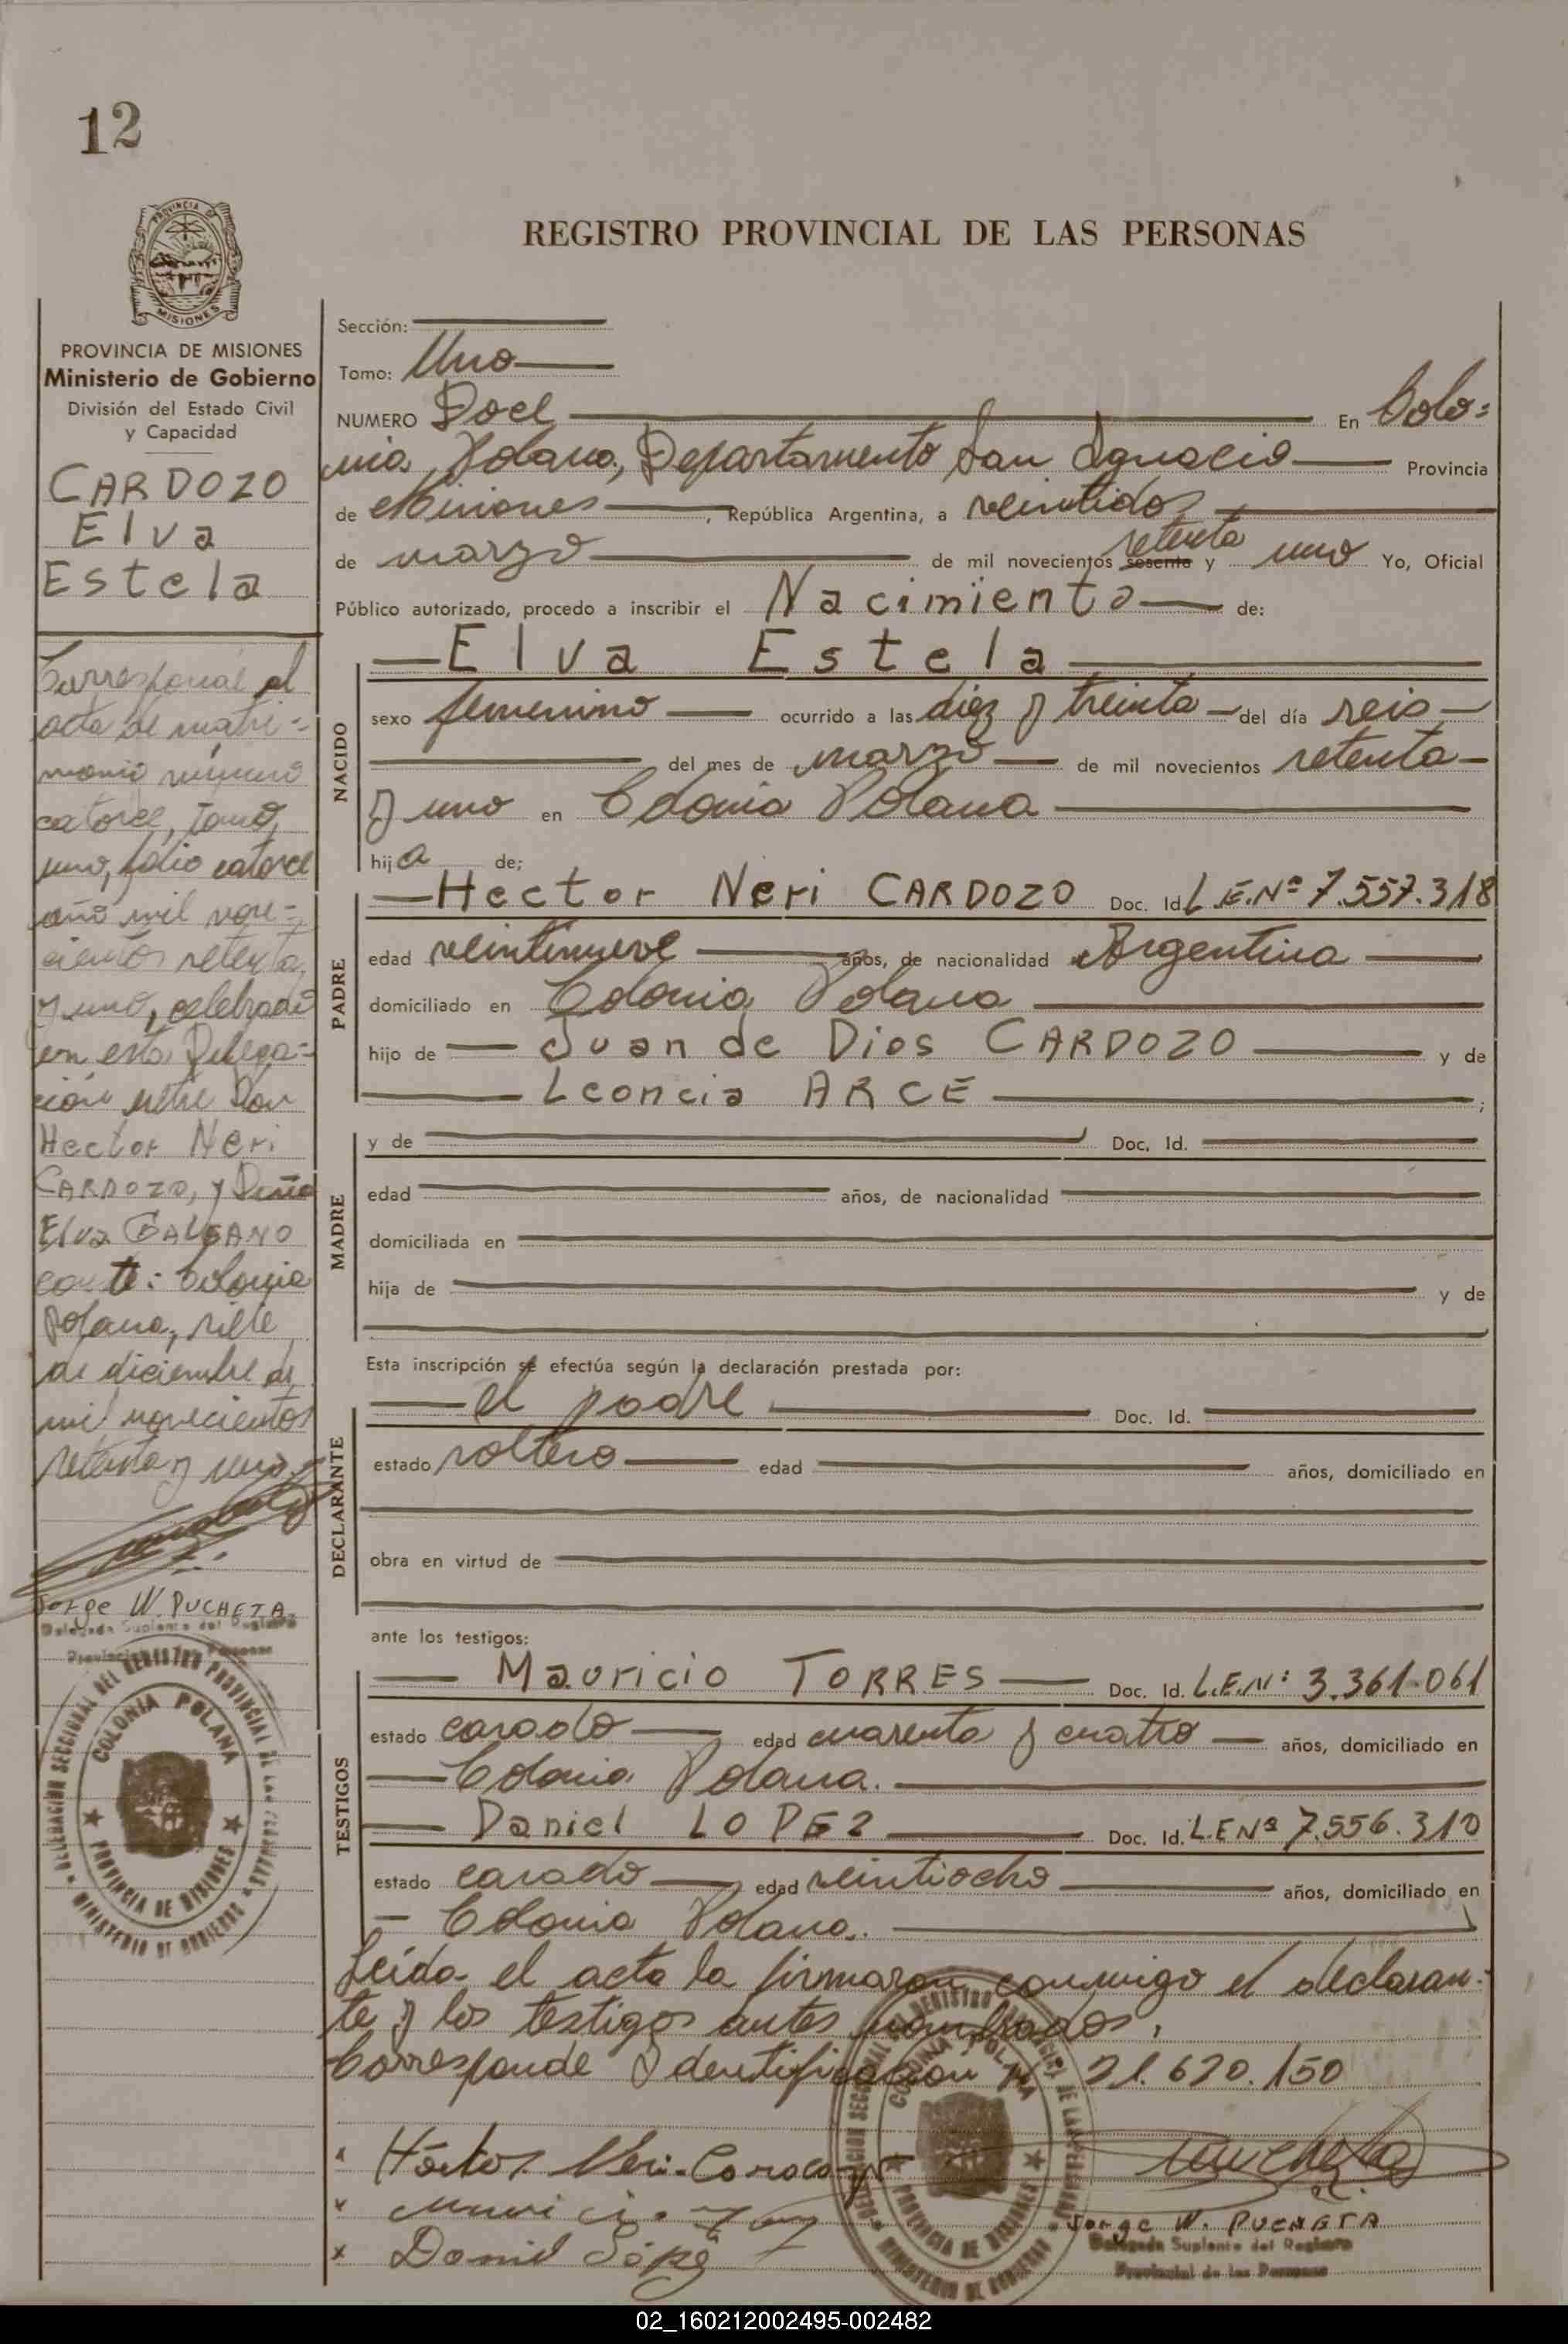 12
PROVINCIA DE MISIONES
Ministerio de Gobierno
División del Estado Civil
y Capacidad
CARDOZO
Elva
Estela
Corresponde el
acta de matri-
monio número
catorce, tomo
uno, folio catorce
año mil nove-
cientos setenta
y uno, celebrado
en esta Delega-
ción entre Don
Hector Neri
CARDOZO, y Doña
Elva GALEANO
Colonia
Polana, siete
de diciembre de
mil novecientos
setenta y uno.
Jorge W. PUCHETA
Delegado Suplente del Registro
Provincial de las Personas
DELEGACIÓN SECCIONAL DEL REGISTRO PROVINCIAL DE LAS PERSONAS
COLONIA POLANA
PROVINCIA DE MISIONES
MINISTERIO DE GOBIERNO
REGISTRO PROVINCIAL DE LAS PERSONAS
Sección:
Tomo: Uno
NUMERO Doce En Colo=
nia Polana, Departamento San Ignacio Provincia
de Misiones, República Argentina, a veintidos
de marzo de mil novecientos sesenta setenta y uno Yo, Oficial
Público autorizado, procedo a inscribir el Nacimiento de:
Elva Estela
NACIDO
sexo femenino ocurrido a las diez y treinta del día seis
del mes de marzo de mil novecientos setenta
y uno en Colonia Polana
hija de;
PADRE
Hector Neri CARDOZO Doc. Id. L.E.Nº 7.557.318
edad veintinueve años, de nacionalidad Argentina
domiciliado en Colonia Polana
hijo de Juan de Dios CARDOZO y de
Leoncia ARCE;
MADRE
y de Doc. Id.
edad años, de nacionalidad
domiciliada en
hija de y de
Esta inscripción se efectúa según la declaración prestada por:
DECLARANTE
el padre Doc. Id.
estado soltero edad años, domiciliado en
obra en virtud de
ante los testigos:
TESTIGOS
Mauricio TORRES Doc. Id. L.E.Nº 3.361.061
estado casado edad cuarenta y cuatro años, domiciliado en
Colonia Polana.
Daniel LOPEZ Doc. Id. L.E Nº 7.556.310
estado casado edad veintiocho años, domiciliado en
Colonia Polana.
Leída el acta la firmaron conmigo el declaran-
te y los testigos antes nombrados.
Corresponde Identificación Nº 21.620.150
Daniel López
Jorge W. PUCHETA
Delegado Suplente del Registro
Provincial de las Personas
02_160212002495-002482